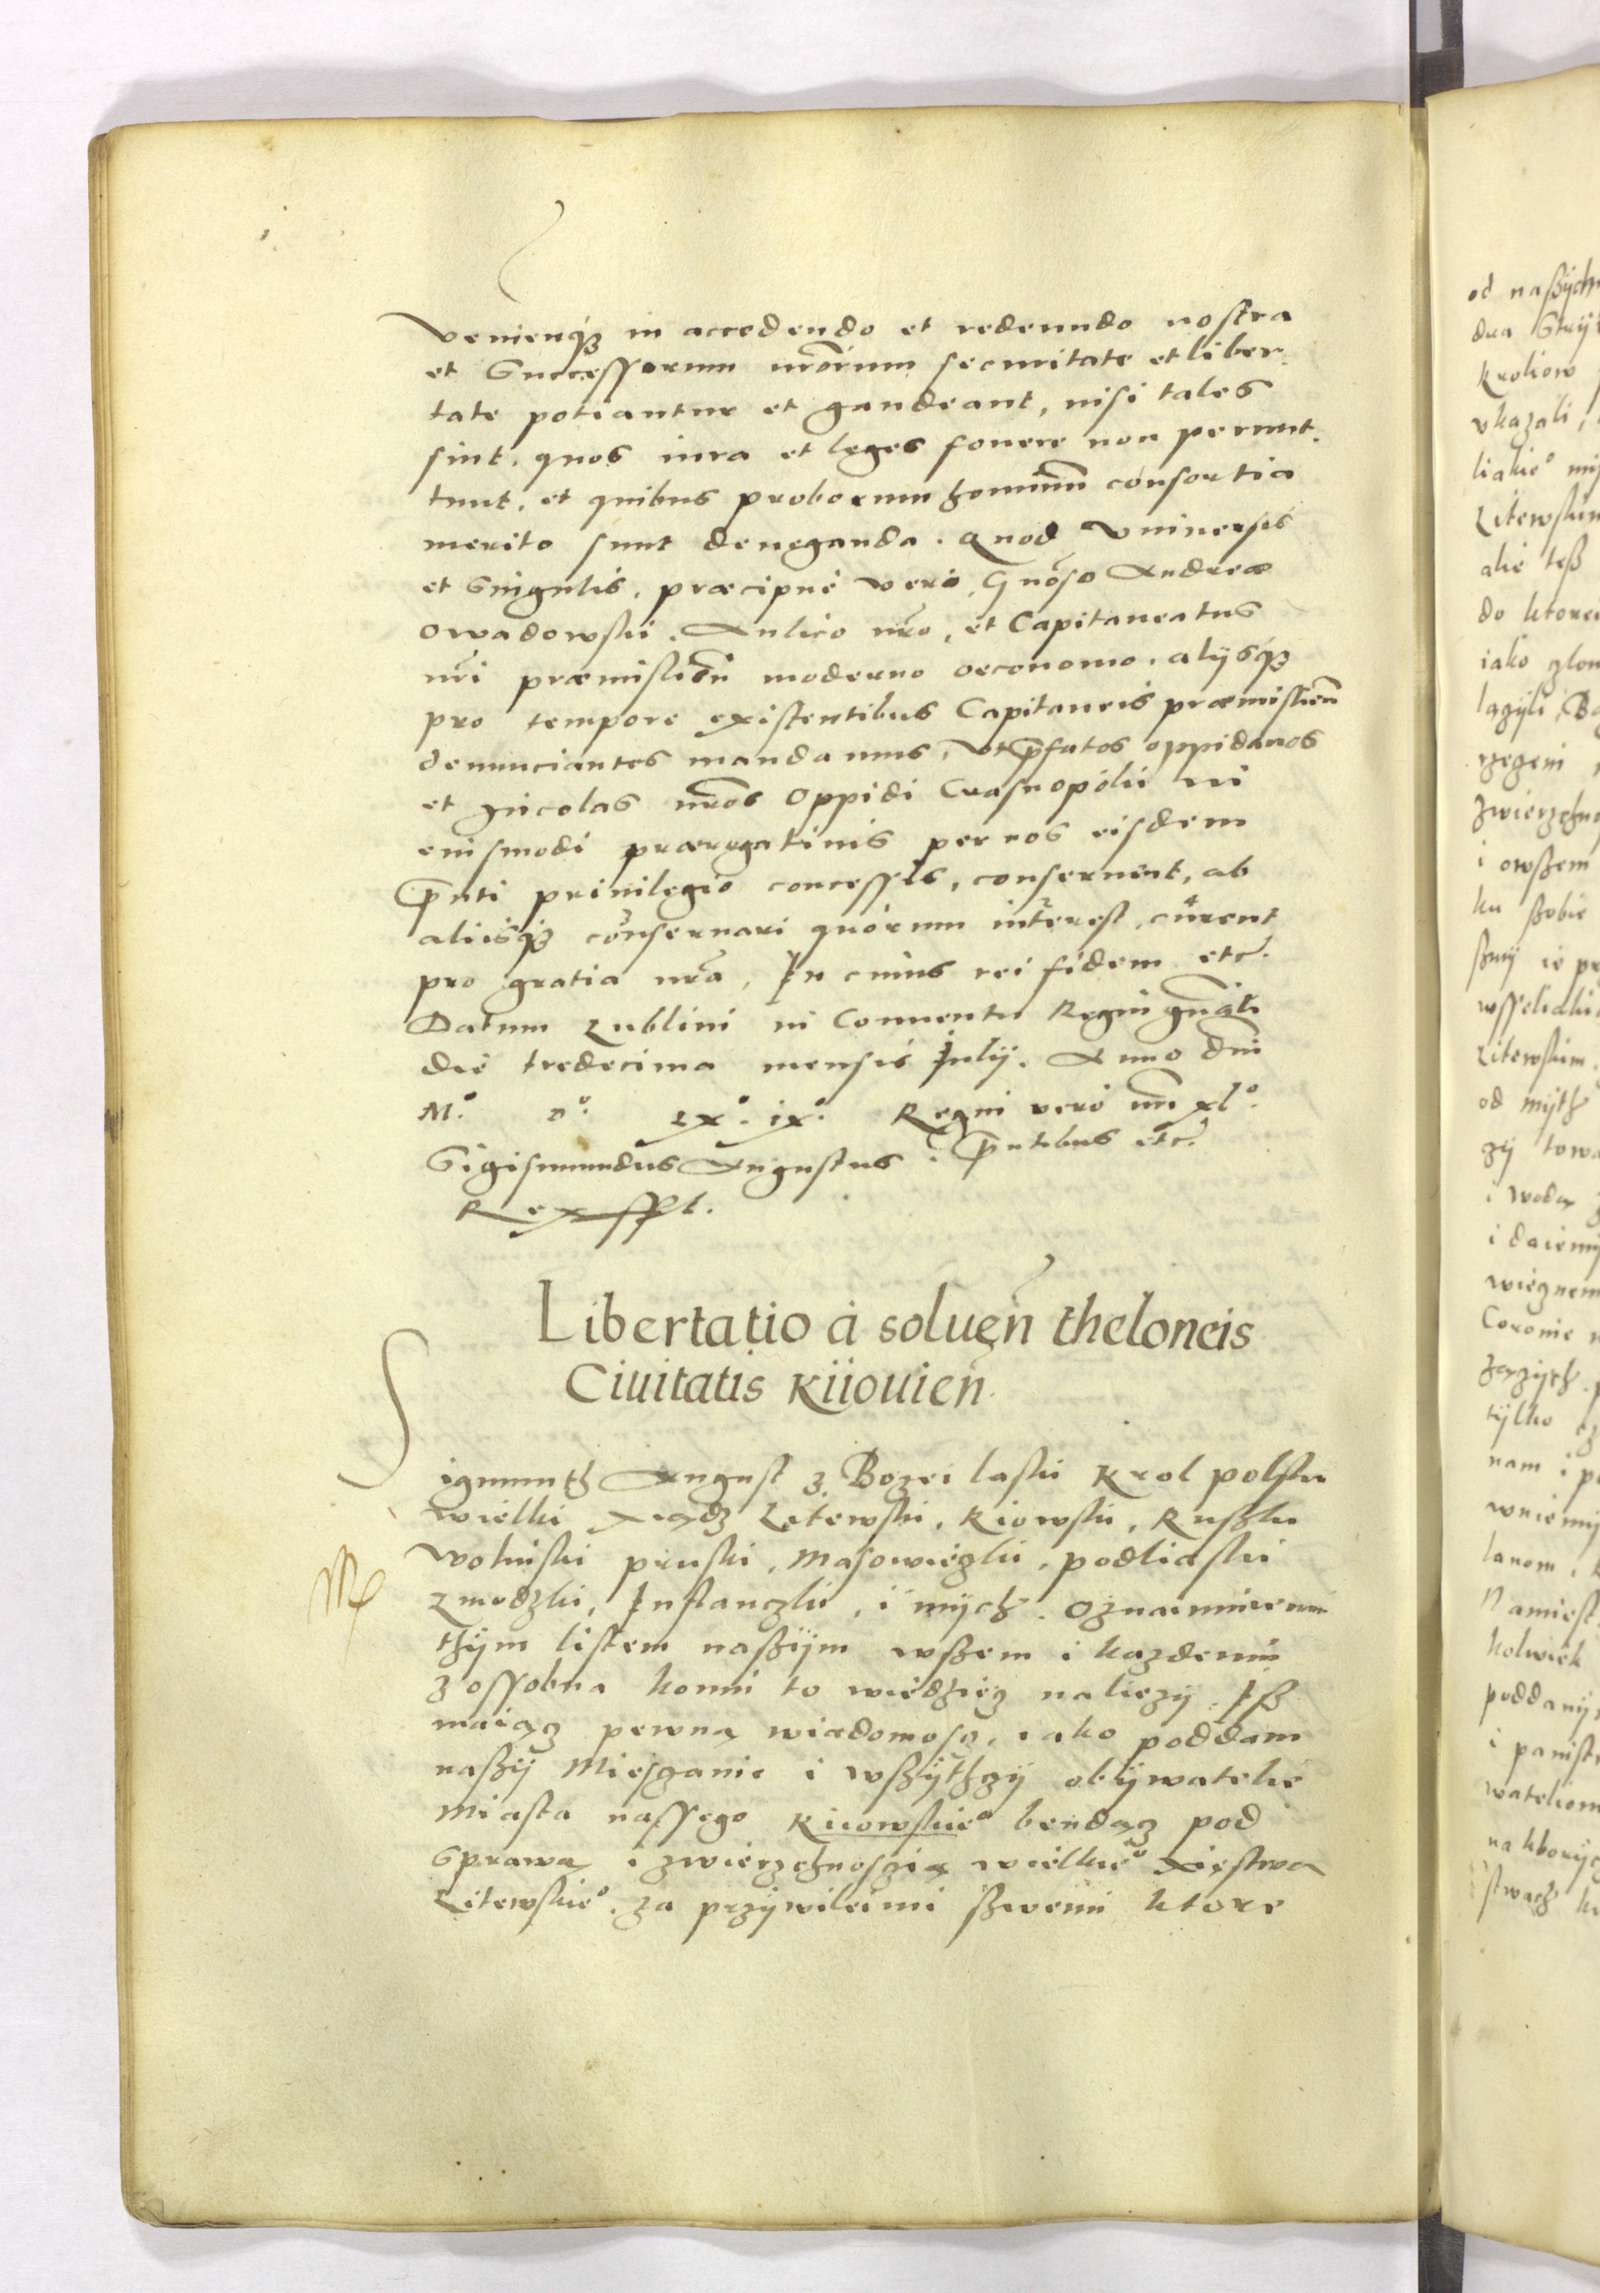 venienq₃ in accedendo et redeundo nostra
et Successorum nrōrum securitate et liber
tate potiantur et gaudeant, nisi tales
sint. quos iura et leges fouere non permit.
tunt. et quibus proborum hominū consortia
merito sunt deneganda. Quod Vniuersis
et Singulis. præcipuè verò, Gnōso Andreæ
Owadowski. Aulico nrō, et Capitaneatus
nrī præmislien̄ moderno oeconomo. alijsq₃
pro tempore existentibus Capitaneis præmislien̄
denunciantes mandamus, vt p̄fatos oppidanos
et Incolas nrōs Oppidi Crasnopolii in
eiusmodi prærogatiuis per nos eisdem
p̄nti priuilegio concessis, conseruent, ab
aliisq₃ conseruari quorum interest, curent
pro gratia nrā, In cuius rei fidem etc.
Datum Lublini in Conuentu Regni gn̄ali
die tredecima mensis Julij. Anno Dnī
M.º D.º Lxº. ixº. Regni verò nrī xlº.
Sigismundus Augustus. P̄ntibus etc.
Rex sspt.
Libertatio à soluen̄ theloneis
Ciuitatis Kiiouien̄
Sigmunth August z Bozei laski Krol polski
wielki Xiądz Litewski, Kiowski, Ruszki
Wolinski pruski, Masowiezki, podliaski
Zmodzki, Inflanczki, i inÿch. Oznaimuiem
thÿm listem naszÿm wszem i kazdemu
z ossobna komu to wiedziez naliezÿ. Isz
maiącz pewną wiadomosc, iako poddani
naszÿ Miesczanie i wszÿthczÿ obÿwatelie
Miasta nassego Kiiowskieº bendącz pod
Sprawą i zwierzchnoscią wielkieº Xięstwa
Litewskieº. za przÿwileimi szwemi ktore
od naszÿch
Kroliow
vkazali,
liakieº
Litewskim
alie tesz
do ktorei
iako
zwierzchno
i owszem
ku szobie
szmÿ ie
wsseliaki
Litewskim
od mÿth
zÿ towa
i wodą
i daiemÿ
Coronie
tÿlko
nam i
wniemÿ
lanom.
Namiest
kolwiek
poddanÿ
i panistw
wateliom
na ktorÿc
stwach